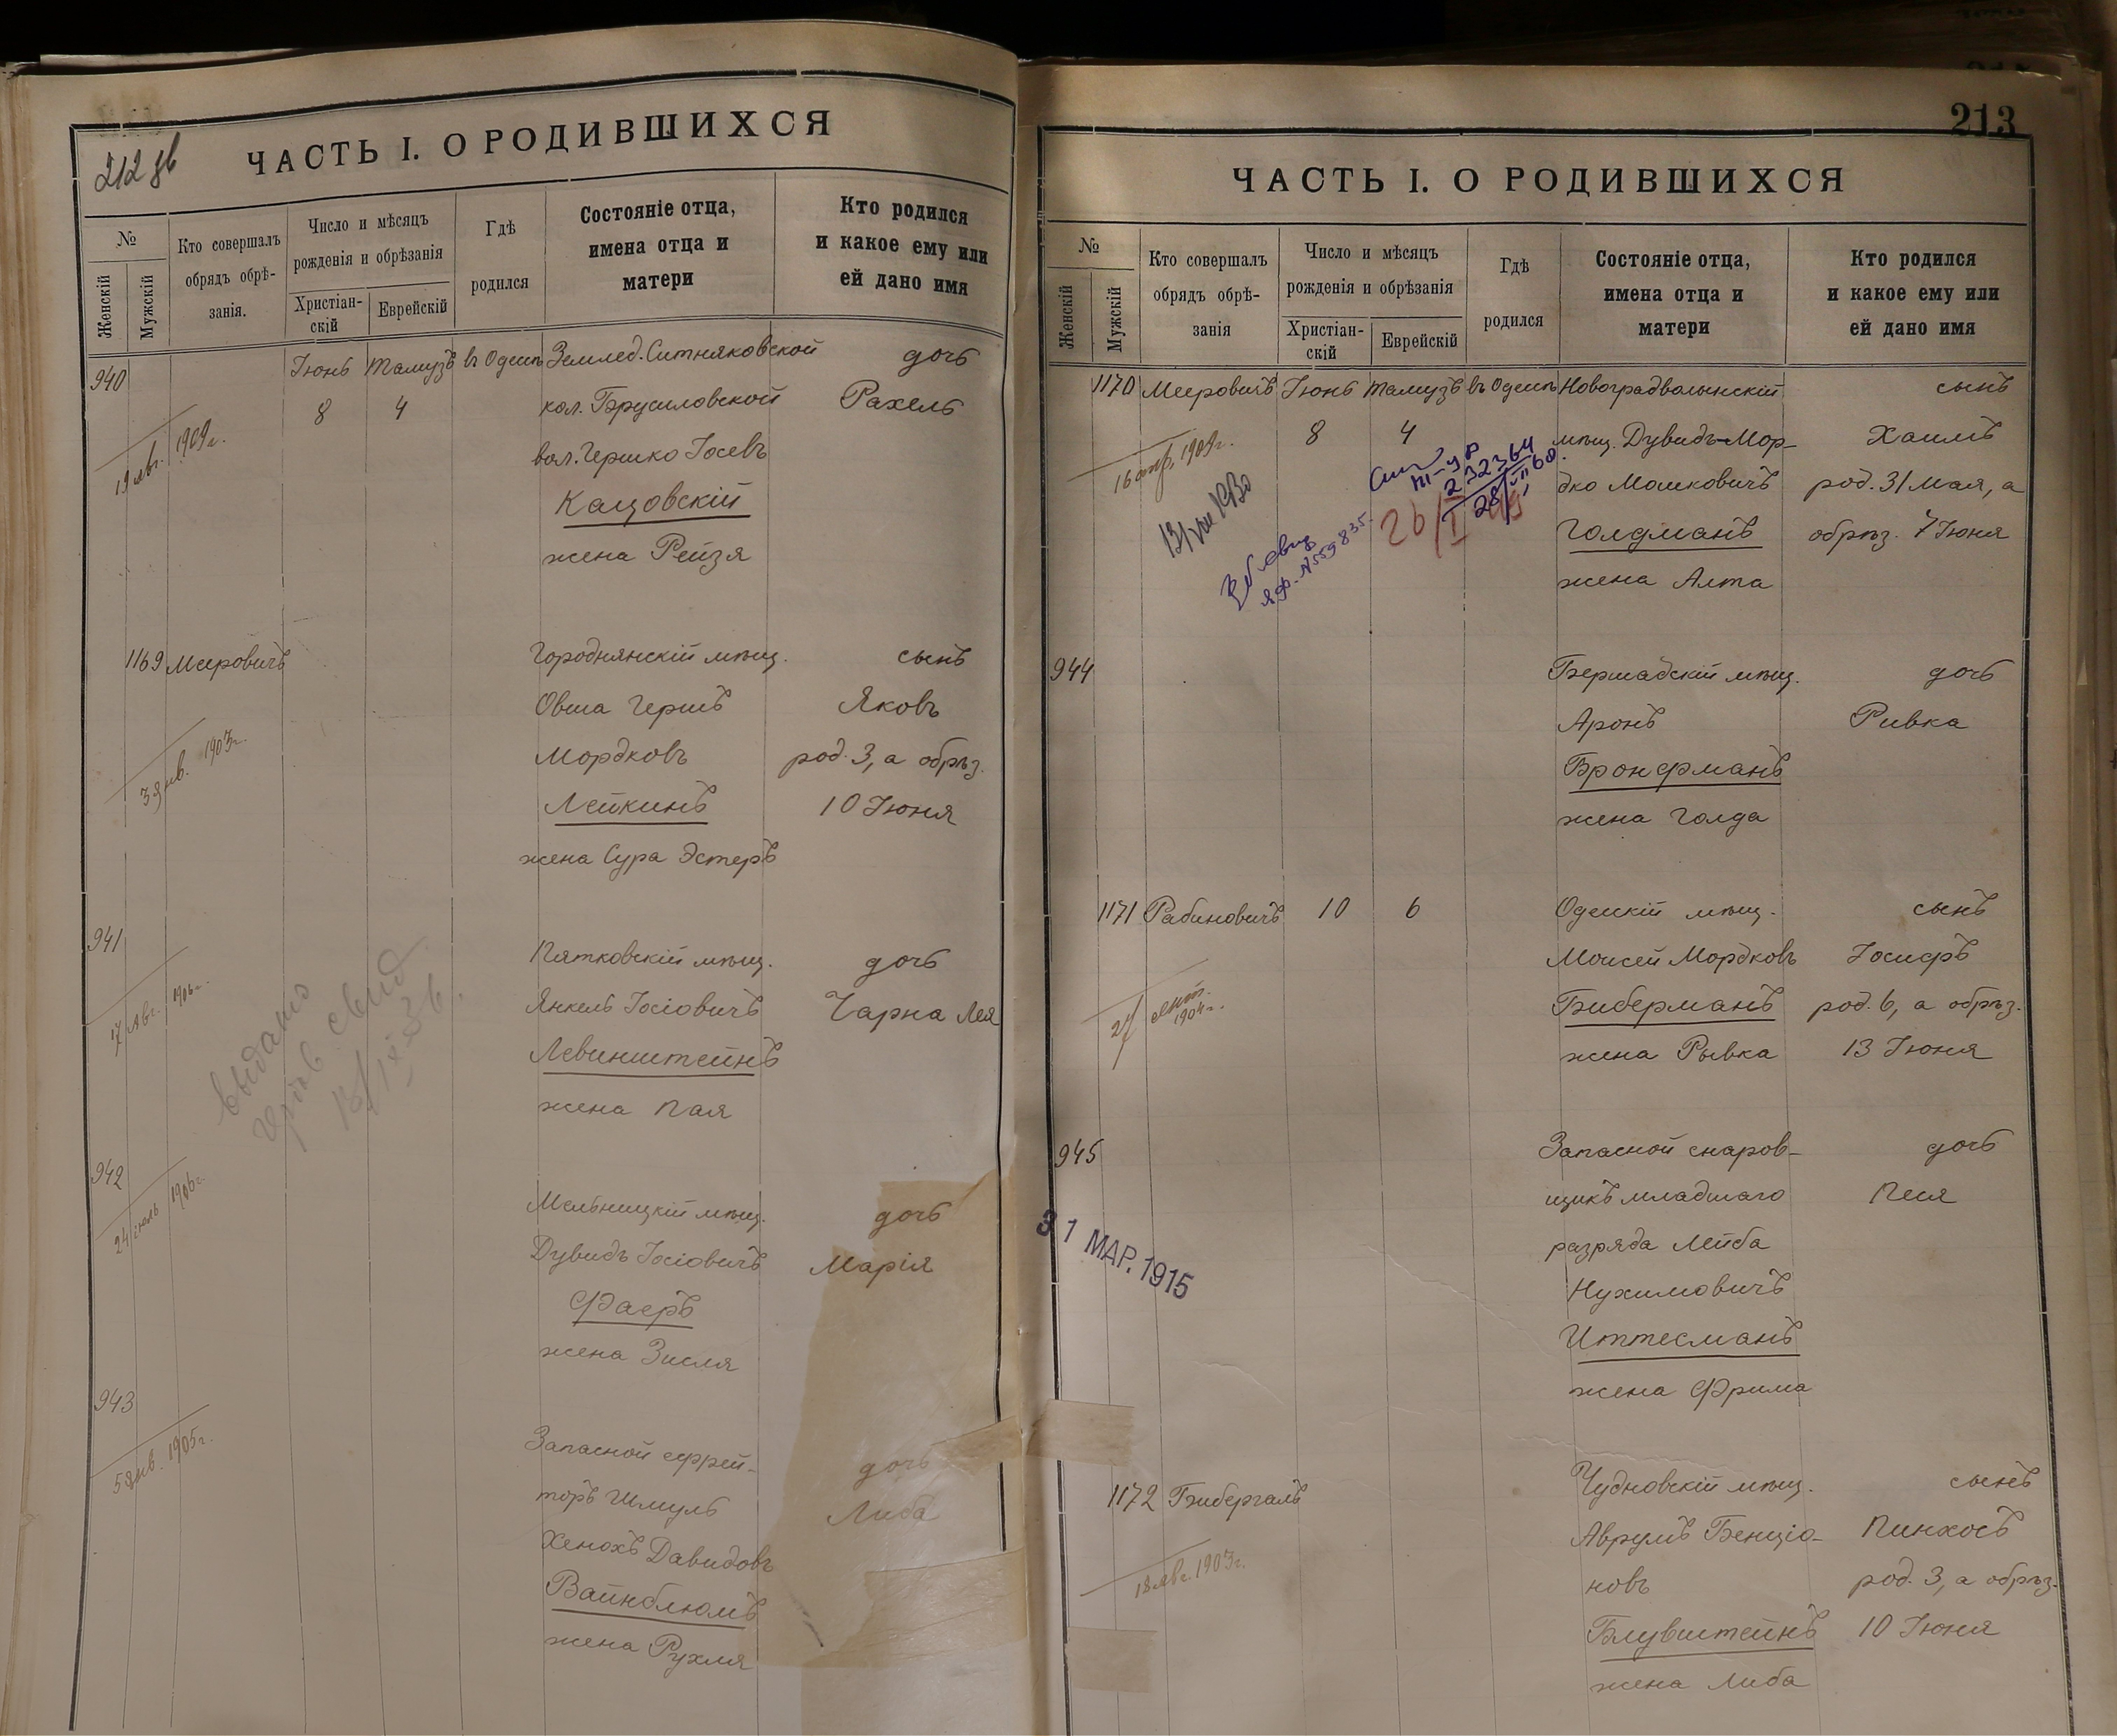 212 об
ЧАСТЬ I. О РОДИВШИХСЯ
№
Женскій
Мужскій
Кто совершалъ
обрядъ обрѣ-
занія.
Число и мѣсяцъ
рожденія и обрѣзанія
Христіан-
скій
Еврейскій
Гдѣ
родился
Состояніе отца,
имена отца и
матери
Кто родился
и какое ему или
ей дано имя
940 Іюнь Тамузъ въ Одессѣ Землед. Ситняковской дочь
8 4 кол. Брусиловской Рахель
19 авг. 1909 г.
вол. Гершко Іосевъ
Кацовскій
жена Рейзя
1169 Мееровичъ Городнянскій мѣщ. сынъ
Овша Гершъ Яковъ
Мордковъ род. 3, а обрѣз.
3 янв. 1903 г.
Лейкинъ 10 Іюня
жена Сура Эстеръ
941 Пятковскій мѣщ. дочь
Янкель Іосіовичъ Чарна Лея
17 Авг. 1906 г.
Левинштейнъ
жена Пая
выдано
свид
942 Мельницкій мѣщ. дочь
Дувидъ Іосіовичъ Марія
24 іюль 1906 г.
Фаеръ
жена Зисля
943 Запасной ефрей-
дочь
торъ Шмуль Либа
5 янв. 1905 г.
Хенохъ Давидовъ
Вайнблюмъ
жена Рухля
213
ЧАСТЬ I. О РОДИВШИХСЯ
№
Женскій
Мужскій
Кто совершалъ
обрядъ обрѣ-
занія
Число и мѣсяцъ
рожденія и обрѣзанія
Христіан-
скій
Еврейскій
Гдѣ
родился
Состояніе отца,
имена отца и
матери
Кто родился
и какое ему или
ей дано имя
1170 Мееровичъ Іюнь Тамузъ въ Одессѣ Новоградволынскій сынъ
8 4 мѣщ. Дувидъ-Мор- Хаимъ
дко Мошковичъ род. 31 Мая, а
Голдманъ обрѣз. 7 Іюня
жена Алта
1909 г.
232364
28/VII 60.
26/I
№559835.
944 Бершадскій мѣщ. дочь
Аронъ Ривка
Бронфманъ
жена Голда
1171 Рабиновичъ 10 6 Одесскій мѣщ. сынъ
Моисей Мордковъ Іосифъ
Биберманъ род. 6, а обрѣз.
жена Рывка 13 Іюня
27
1904 г.
945 Запасной снаров- дочь
щикъ младшаго Песя
разряда Лейба
Нухимовичъ
Иттесманъ
жена Фрима
31 МАР. 1915
1172 Бибергалъ Чудновскій мѣщ. сынъ
Аврумъ Бенціо- Пинхосъ
18 авг. 1903 г.
новъ род. 3, а обрѣз.
Блувштейнъ 10 Іюня
жена Либа